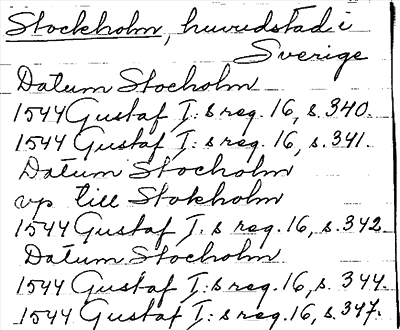 Stockholm, huvudstad i
Sverige
Datum Stocholm
1544 Gustaf I:s reg. 16, s. 340.
1544 Gustaf I:s reg. 16, s. 341.
Datum Stocholm
vp till Stokholm
1544 Gustaf I:s reg. 16, s. 342.
Datum Stocholm
1544 Gustaf I:s reg. 16, s. 344.
1544 Gustaf I:s reg. 16, s. 347.